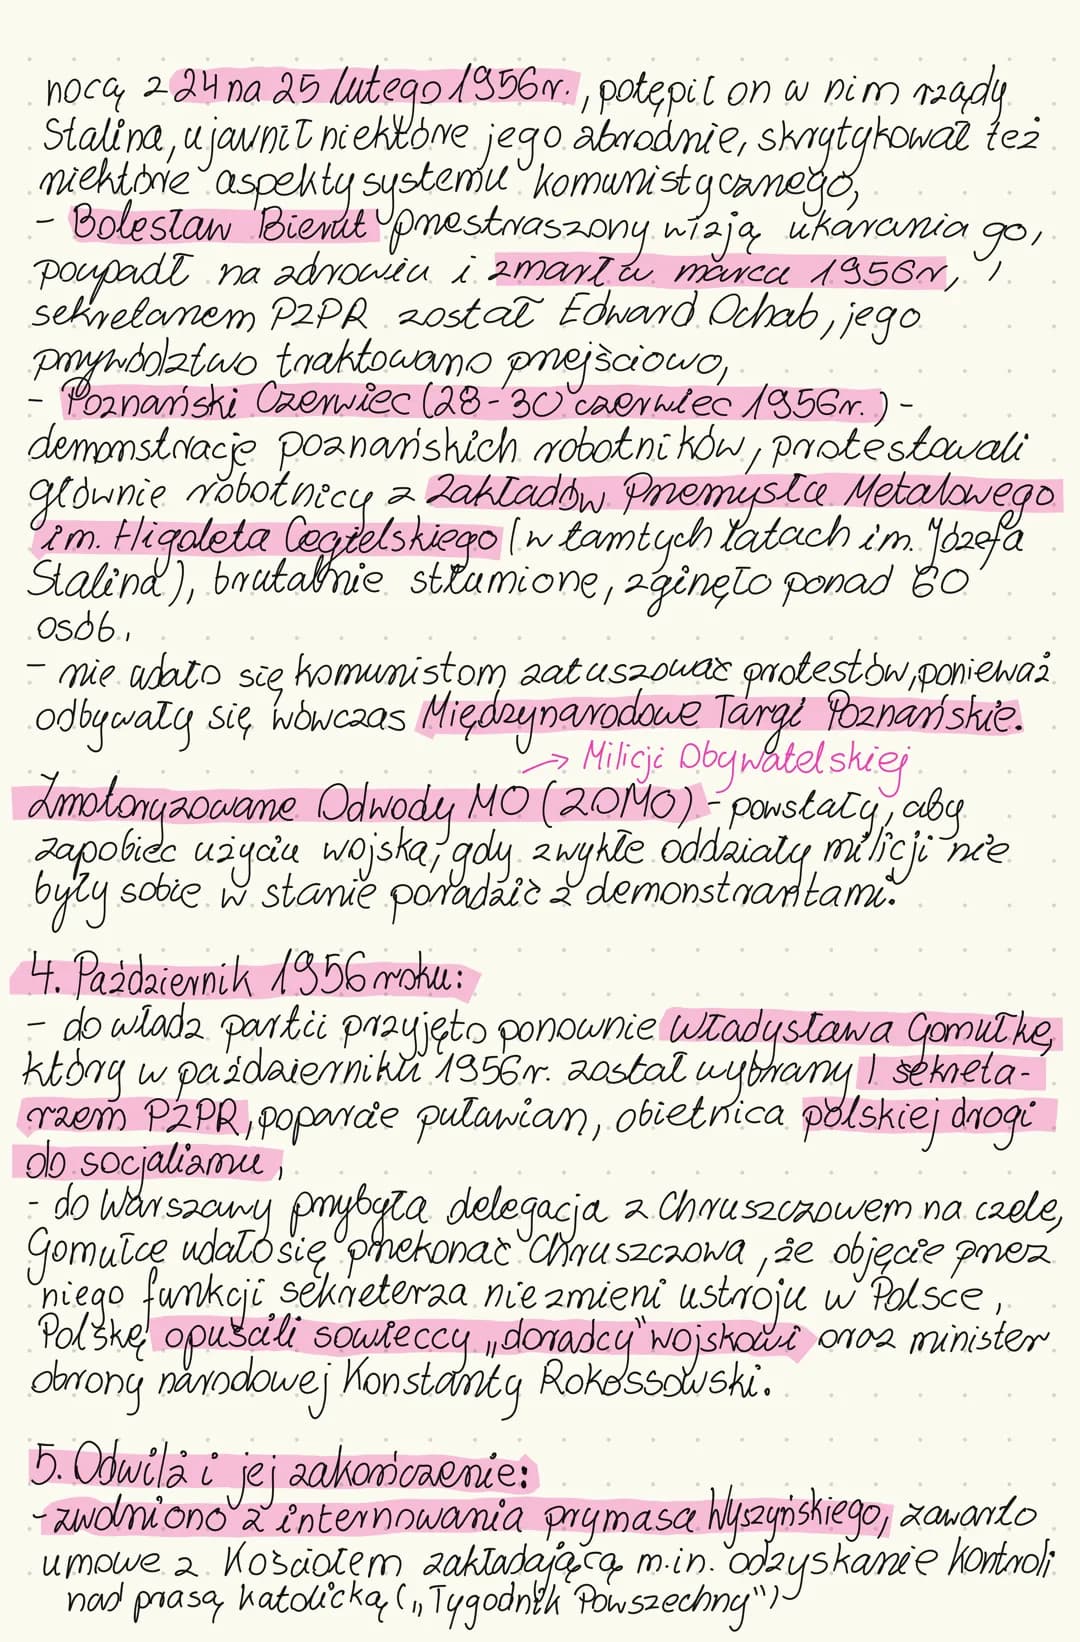 nocą z 24 na 25 lutego 1956r., potępił on w nim rządy
Stalina, ujawnił niektóre jego zbrodnie, skrytykował też
niektóre aspekty systemu komunistycznego,
- Bolesław Bierut przestraszony wizją ukarania go,
poupadł na zdrowiu i zmarł w marcu 1956r,
sekretarzem PZPR został Edward Ochab, jego
przywództwo traktowano przejściowo,
- Poznański Czerwiec (28-30 czerwiec 1956r.) -
demonstracje poznańskich robotników, protestowali
głównie robotnicy z Zakładów Przemysła Metalowego
im. Higoleta Cegielskiego (w tamtych latach im. Józefa
Stalina), brutalnie stłumione, zginęło ponad 60
osób,
- nie udało się komunistom zatuszować protestów, ponieważ
odbywały się wówczas Międzynarodowe Targi Poznańskie.
→ Milicji Obywatelskiej
Zmotoryzowane Odwody MO (ZOMO) - powstały, aby
zapobiec użyciu wojska, gdy zwykłe oddziały milicji nie
były sobie w stanie poradzić z demonstrantami.
4. Październik 1956 roku:
- do władz partii przyjęto ponownie Władysława Gomułkę,
który w październiku 1956r. został wybrany I sekreta-
rzem PZPR, poparcie puławian, obietnica polskiej drogi
do socjalizmu,
- do Warszawy przybyła delegacja z Chruszczowem na czele,
Gomułce udało się przekonać Chruszczowa, że objęcie przez
niego funkcji sekreterza nie zmieni ustroju w Polsce,
Polskę opuścili sowieccy „doradcy" wojskowi oraz minister
obrony narodowej Konstanty Rokossowski.
5. Odwilż i jej zakończenie:
- zwolniono z internowania prymasa Wyszyńskiego, zawarto
umowe z Kościołem zakładającą m.in. odzyskanie kontroli
nad prasą katolicką („Tygodnik Powszechny")